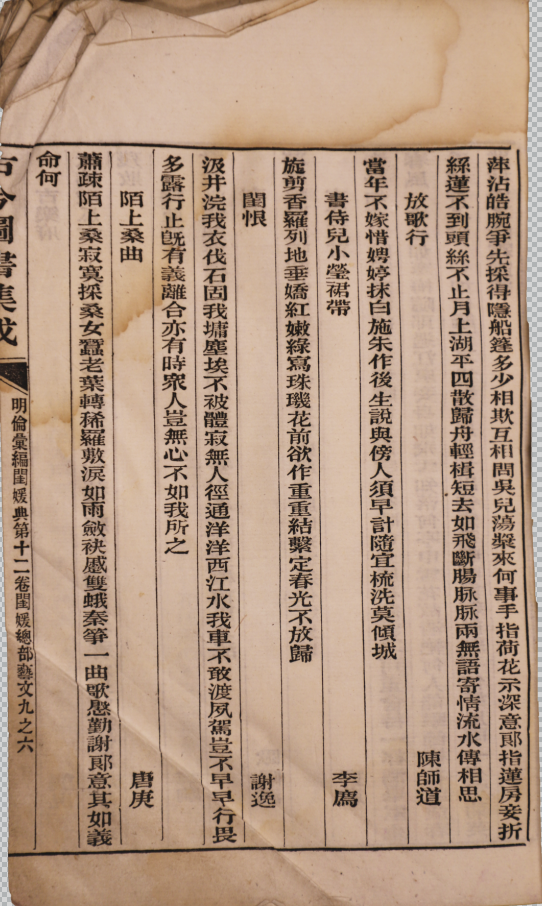 萍沾皓腕爭先採得隱船篷多少相欺互相問吳兒蕩槳來何事手指荷花示深意郎指蓮房妾折
絲蓮不到頭絲不止月上湖平四散歸舟輕楫短去如飛斷腸脉脉兩無語寄情流水傳相思
放歌行 陳師道
當年不嫁惜娉婷抹白施朱作後生說與傍人須早計隨宜梳洗莫傾城
書侍兒小瑩裙帶 李廌
旋剪香羅列地垂嬌紅嫩綠寫珠璣花前欲作重重結繫定春光不放歸
閨恨 謝逸
汲井浣我衣伐石固我墉塵埃不被體寂無人徑通洋洋西江水我車不敢渡夙駕豈不早早行畏
多露行止既有義離合亦有時衆人豈無心不如我所之
陌上桑曲 唐庚
蕭疎陌上桑寂寞採桑女蠶老葉轉稀羅敷淚如雨斂袂慼雙蛾秦箏一曲歌慇勤謝郎意其如義
命何
古今圖書集成
明倫彙編閨媛典第十二卷閨媛總部藝文九之六